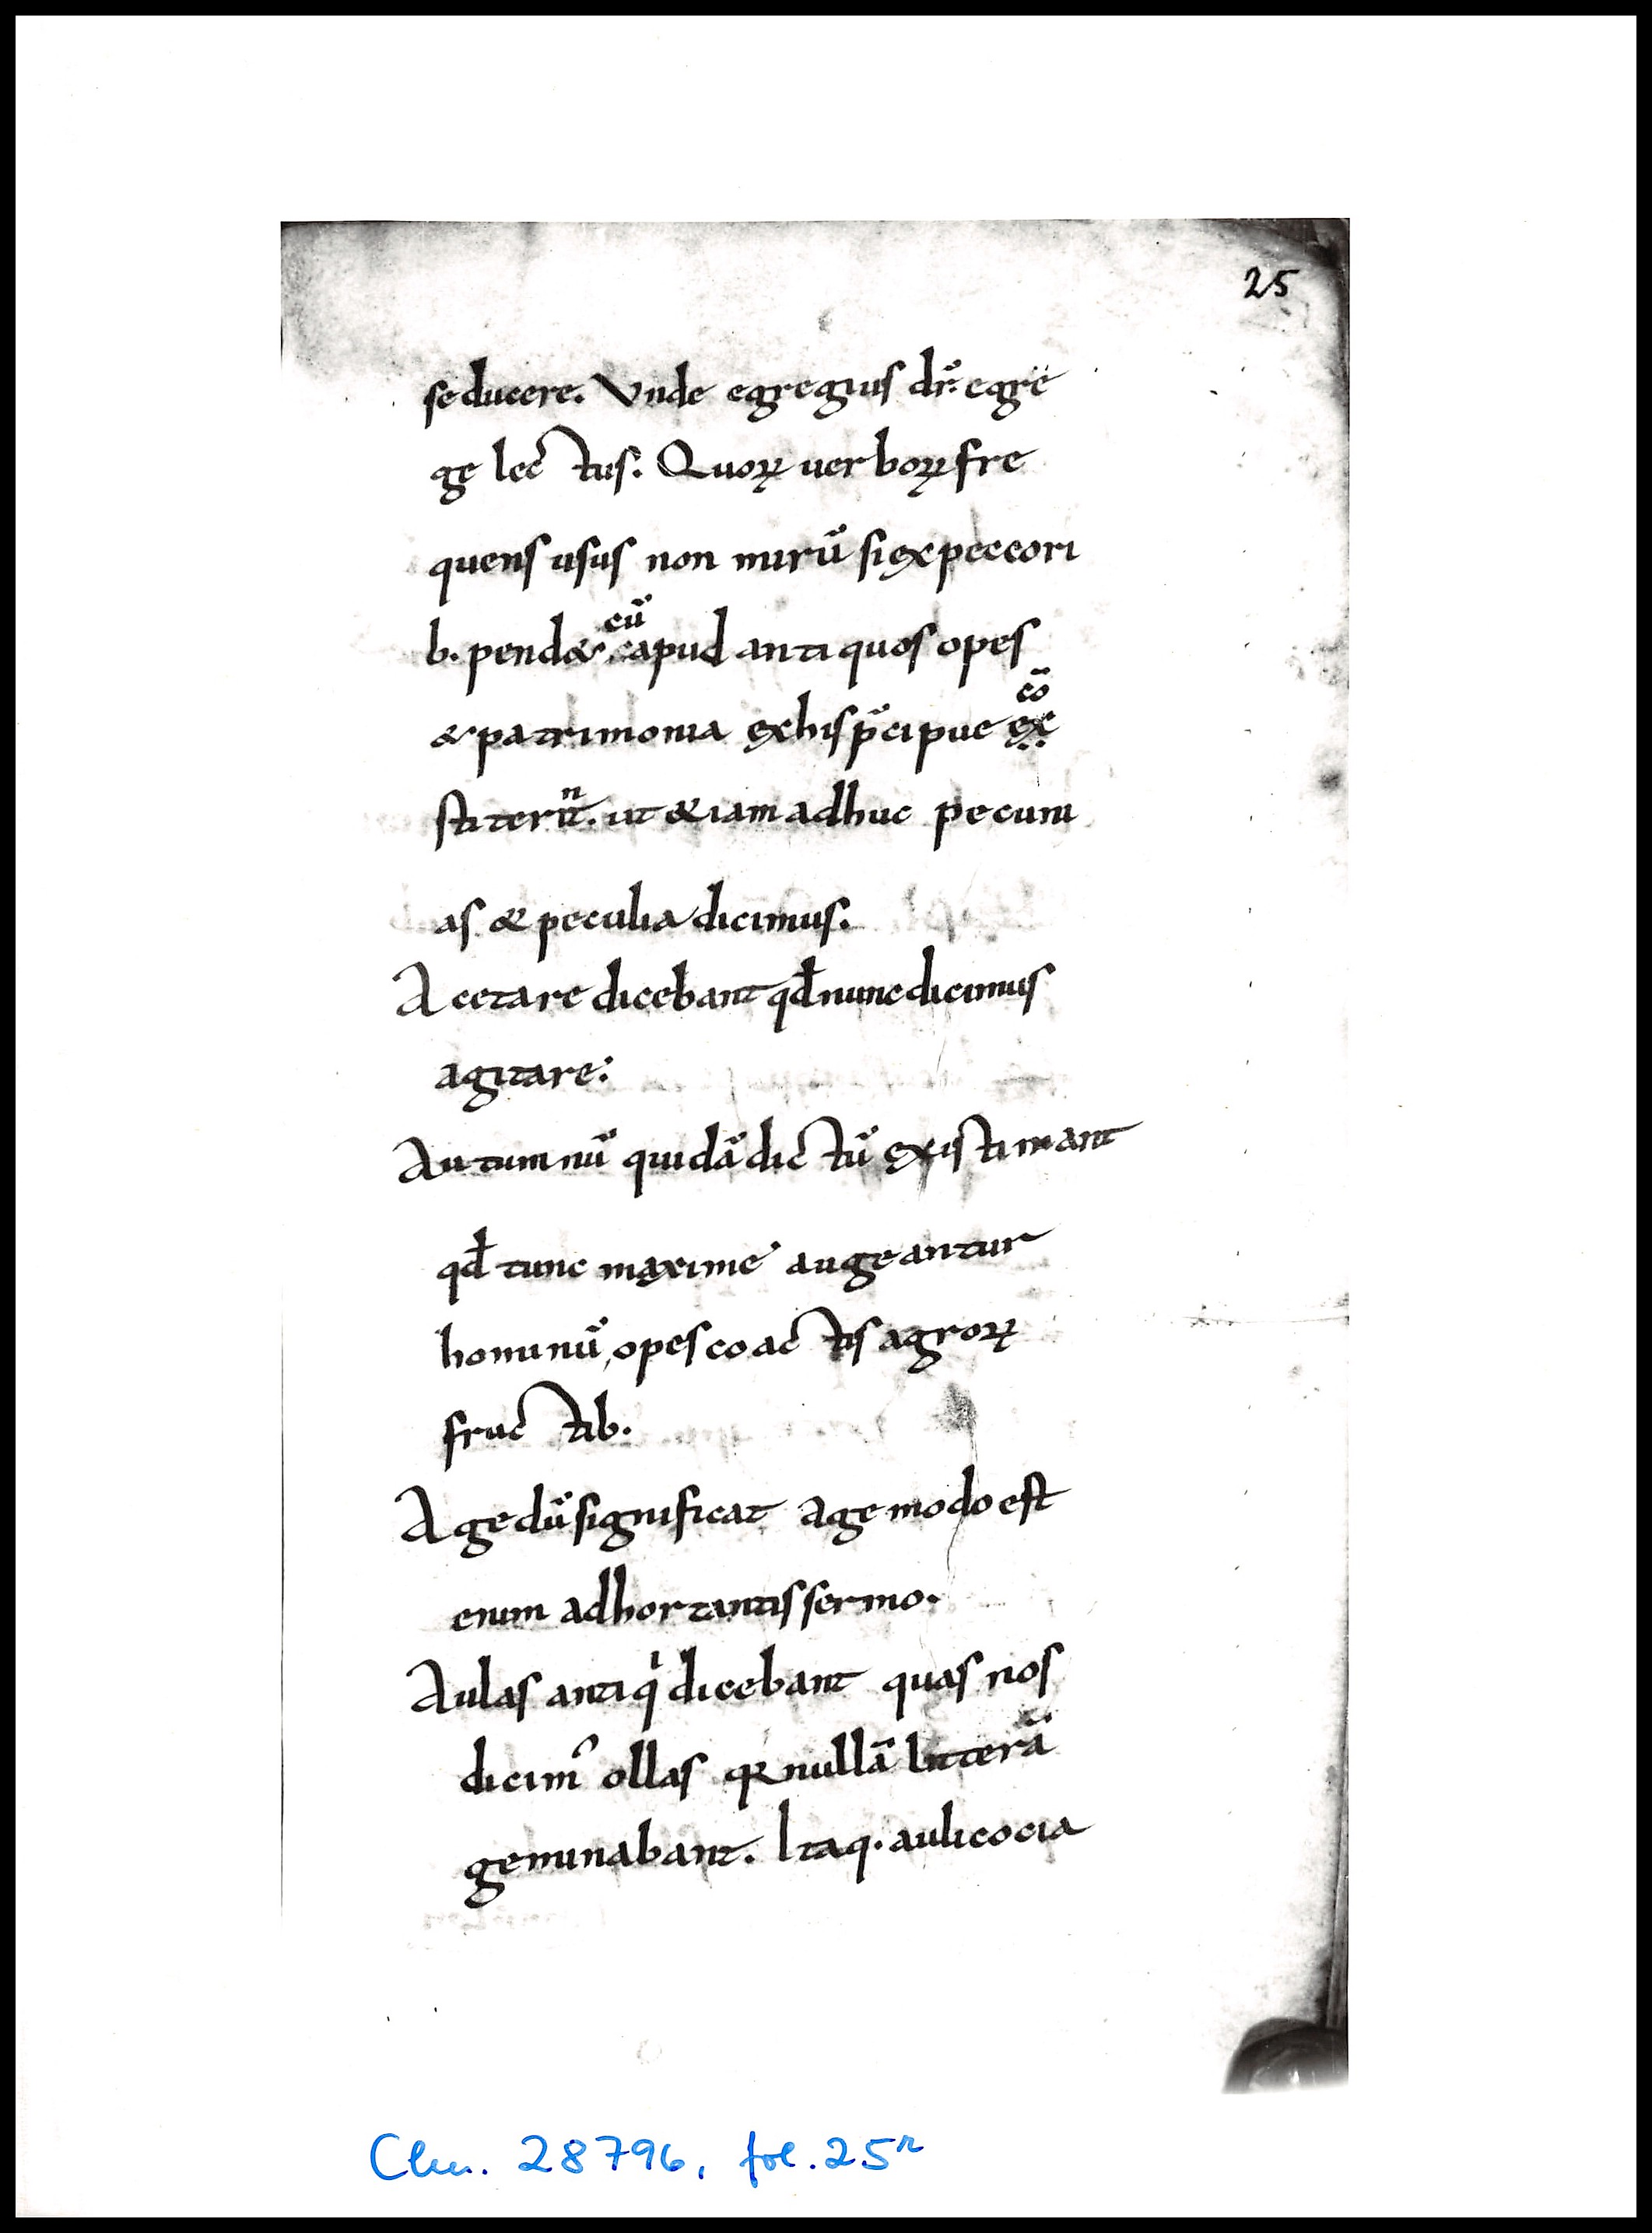 25
seducere. Vnde egregius dr̃. egrę
ge lectus: Quoꝝ uerboꝝ fre
quens usus non mirũ si ex peccori
b. pend& cũ apud antiquos opes
& patrimonia ex his p̃cipue ex cõ
stiterũt. n ut &iam adhuc pecuni
as & peculia dicimus.
Acetare dicebant qđ nunc dicimus
agitare:
Autumnũ quidã dictũ existimant
qđ tunc maxime augeantur
hominũ, opes coactis agroꝝ
fructib.
Age dũ significat age modo est
enim adhortantis sermo.
Aulas antiqⁱ dicebant quas nos
dicim᾽ ollas qꝛ nullã litterã
geminabant. Itaq. aulicocia
Clm. 28796, fol. 25r